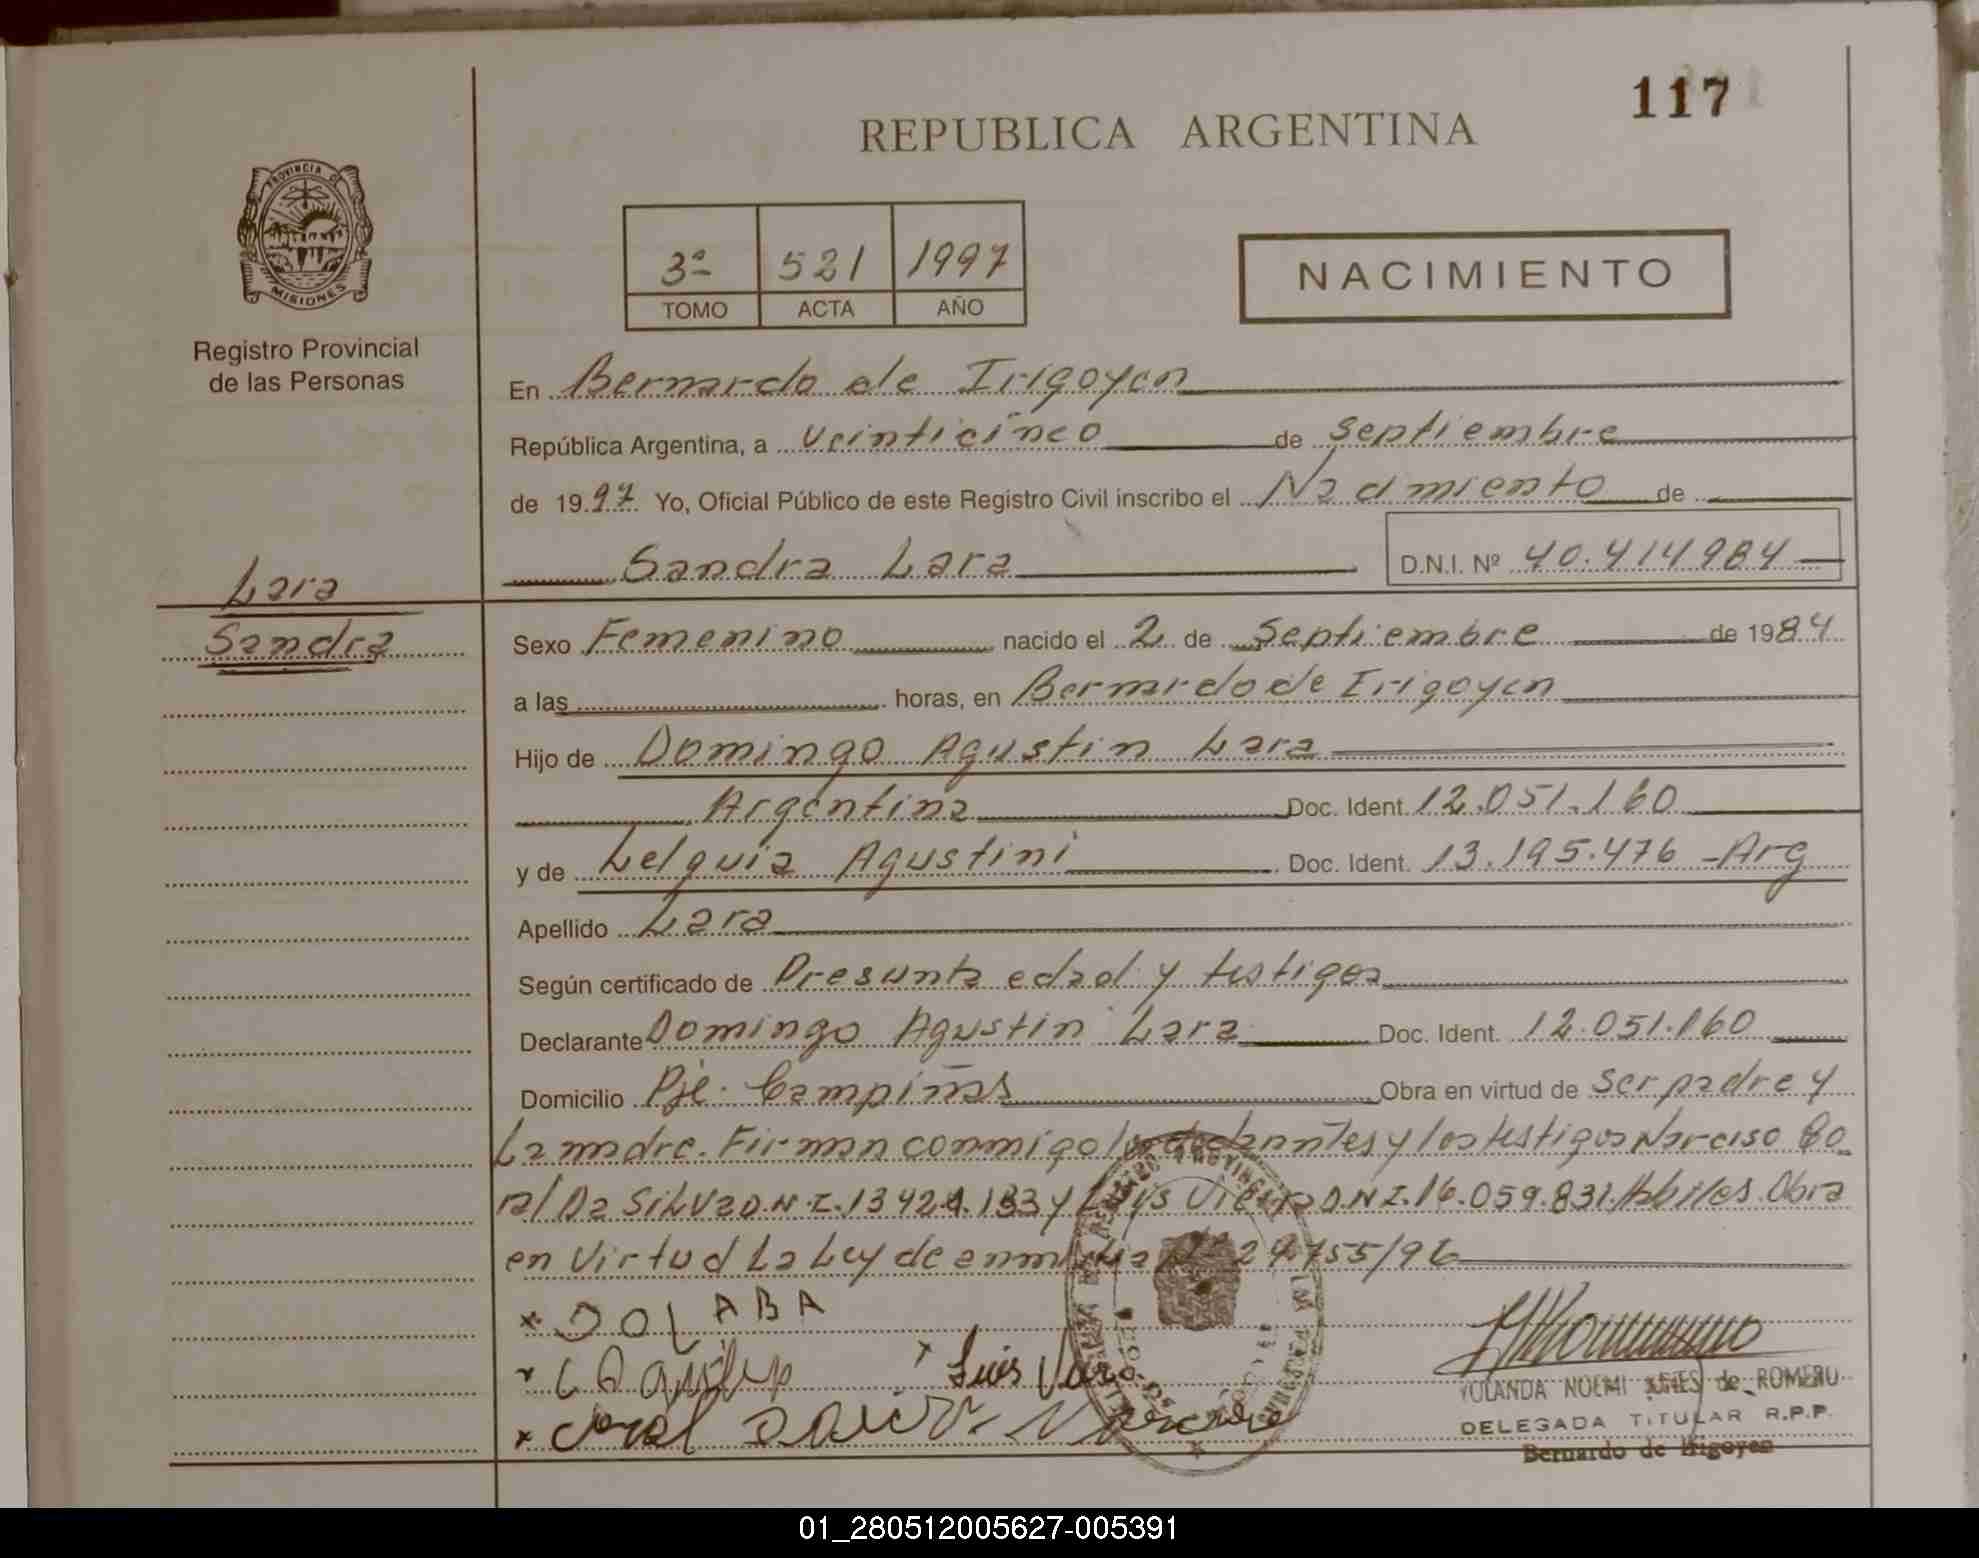 117
REPUBLICA ARGENTINA
PROVINCIA D
MISIONES
Registro Provincial
de las Personas
3ª 521 1997
TOMO ACTA AÑO
NACIMIENTO
En Bernardo de Irigoyen
República Argentina, a veinticinco de Septiembre
de 1997 Yo, Oficial Público de este Registro Civil inscribo el Nacimiento de
Sandra Lara D.N.I. Nº 40.414984
Lara
Sandra
Sexo Femenino nacido el 2 de Septiembre de 1984
a las horas, en Bernardo de Irigoyen
Hijo de Domingo Agustin Lara
Argentina Doc. Ident. 12.051.160
y de Lelguia Agustini Doc. Ident. 13.195.476 -Arg
Apellido Lara
Según certificado de Presunta edad y testigos
Declarante Domingo Agustin Lara Doc. Ident. 12.051.160
Domicilio Pje. Campiñas Obra en virtud de ser padre y
La madre. Firman conmigo los declarantes y los testigos Narciso Co
ral Da Silva D.N.I. 13.424.133 y Luis Viera D.N.I. 16.059.831. Habiles. Obra
en Virtud La Ley de 24755/96
Luis
YOLANDA NOEMI de ROMERO
DELEGADA TITULAR R.P.P.
Bernardo de Irigoyen
01_280512005627-005391